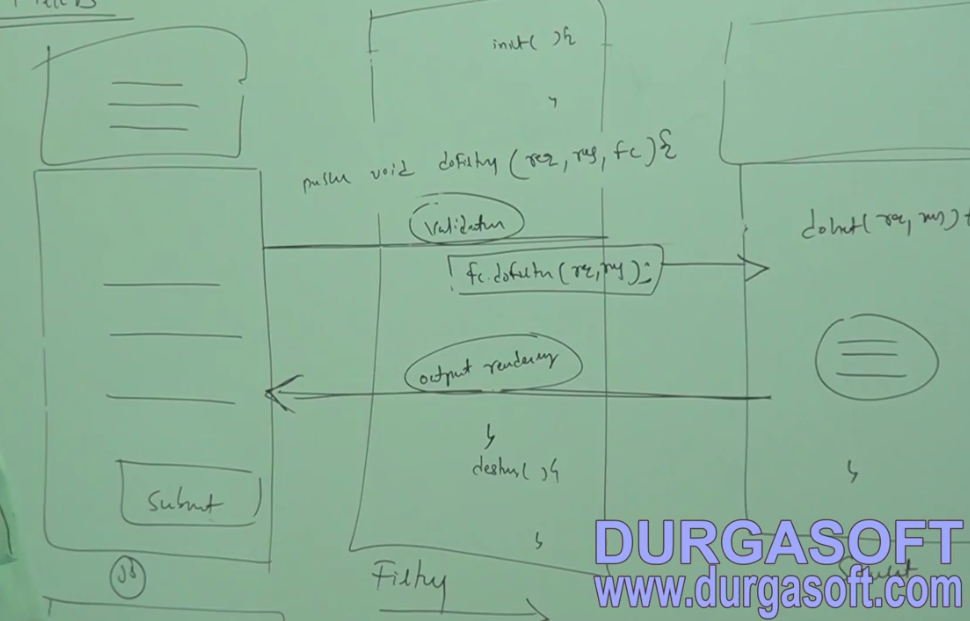 init( ){
}
public void doFilter(req, res, fc){
validation
fc.doFilter(req, res);
output rendering
}
destroy( ){
}
Submit
Filter
doGet(req, res){
}
DURGASOFT
www.durgasoft.com